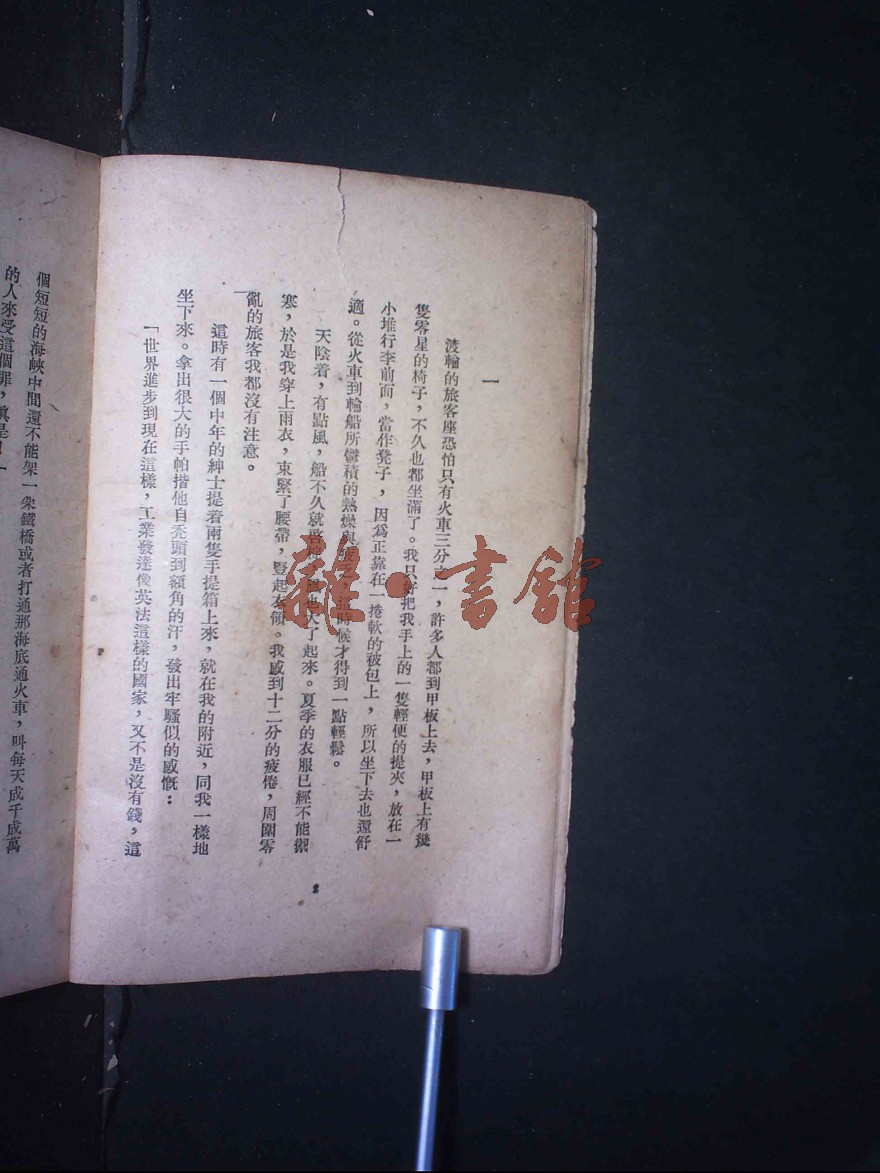 一
渡輪的旅客座恐怕只有火車三分之一，許多人都到甲板上去，甲板上有幾
隻零星的椅子，不久也都坐滿了。我只好把我手上的一隻輕便的提夾，放在一
小堆行李前面，當作凳子，因爲正靠在一捲軟的被包上，所以坐下去也還舒
適。從火車到輪船所鬱積的熱燥與疲乏，這時候才得到一點輕鬆。
天陰着，有點風，船不久就啓椗，風也大了起來。夏季的衣服已經不能禦
寒，於是我穿上雨衣，束緊了腰帶，豎起衣領。我感到十二分的疲倦，周圍零
亂的旅客我都沒有注意。
這時有一個中年的紳士提着兩隻手提箱上來，就在我的附近，同我一樣地
坐下來。拿出很大的手帕揩他自禿頭到額角的汗，發出牢騷似的感慨：
「世界進步到現在這樣，工業發達像英法這樣的國家，又不是沒有錢，這
2
個短短的海峽中間還不能架一架鐵橋或者打通那海底通火車，叫每天成千成萬
的人來受這個罪，眞是
雜·書館